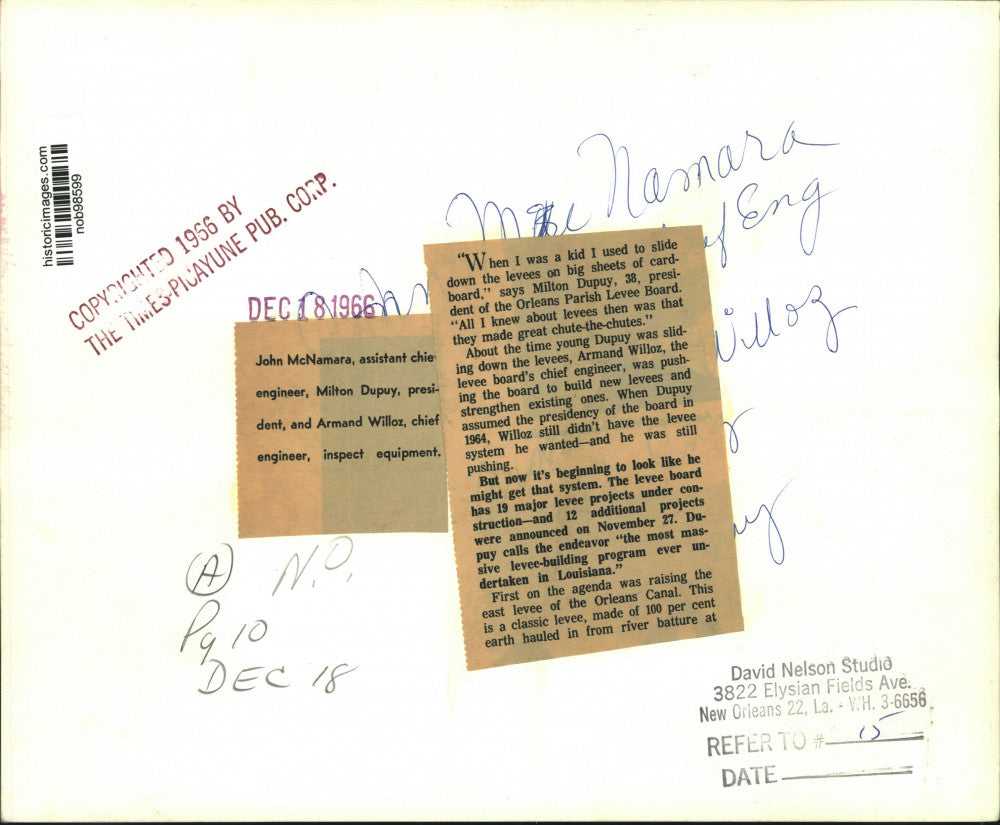 historicimages.com
nob98599
COPYRIGHTED 1966 BY
THE TIMES-PICAYUNE PUB. CORP.
DEC 18 1966
Namara
Eng
Willoz
John McNamara, assistant chie
engineer, Milton Dupuy, presi-
dent, and Armand Willoz, chief
engineer, inspect equipment.
"When I was a kid I used to slide
down the levees on big sheets of card-
board," says Milton Dupuy, 38, presi-
dent of the Orleans Parish Levee Board.
"All I knew about levees then was that
they made great chute-the-chutes."
About the time young Dupuy was slid-
ing down the levees, Armand Willoz, the
levee board's chief engineer, was push-
ing the board to build new levees and
strengthen existing ones. When Dupuy
assumed the presidency of the board in
1964, Willoz still didn't have the levee
system he wanted—and he was still
pushing.
But now it's beginning to look like he
might get that system. The levee board
has 19 major levee projects under con-
struction—and 12 additional projects
were announced on November 27. Du-
puy calls the endeavor "the most mas-
sive levee-building program ever un-
dertaken in Louisiana."
First on the agenda was raising the
east levee of the Orleans Canal. This
is a classic levee, made of 100 per cent
earth hauled in from river batture at
A N.O.
Pg 10
DEC 18
David Nelson Studio
3822 Elysian Fields Ave.
New Orleans 22, La. - WH. 3-6656
REFER TO # 15
DATE